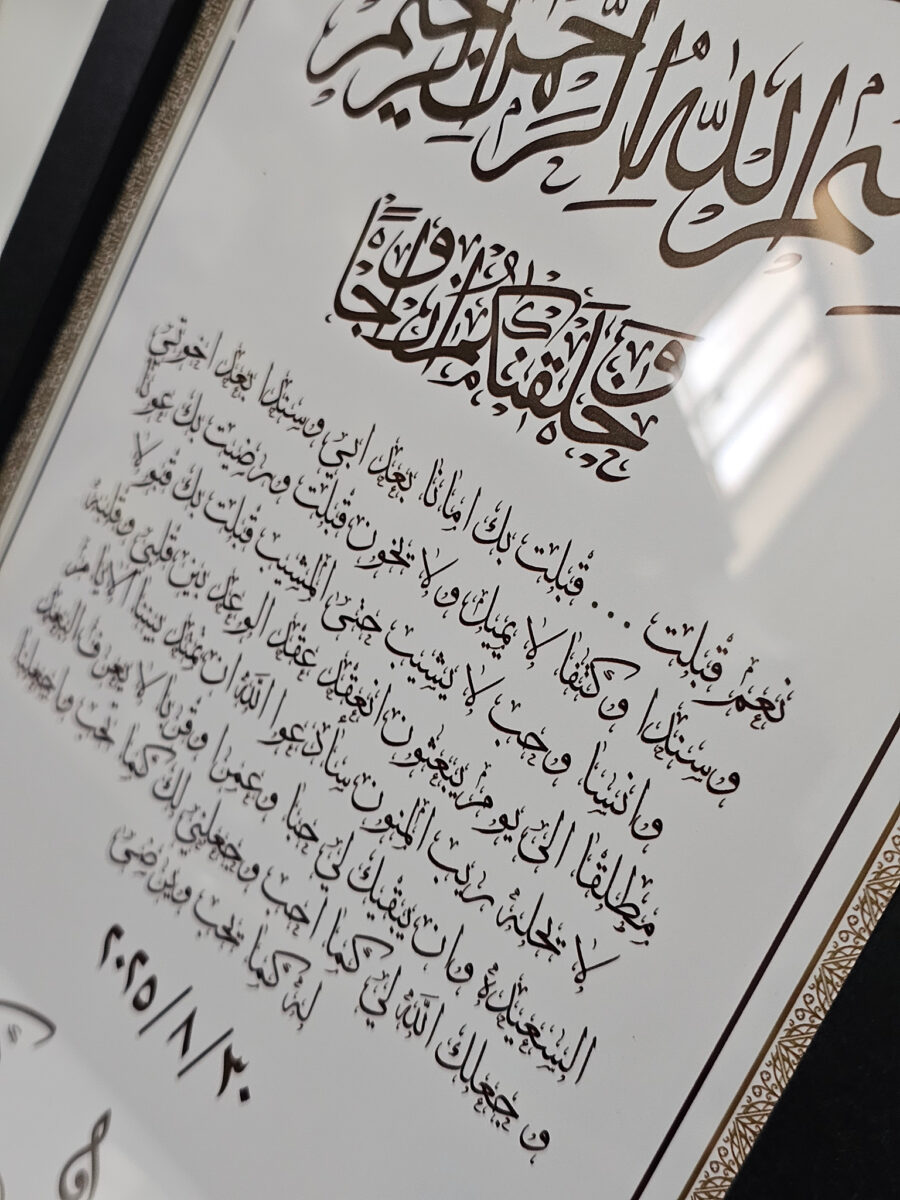 بسم الله الرحمن الرحيم
وَخَلَقْنَاكُمْ أَزْوَاجًا
نعم قبلت ... قبلت بك امانا بعد ابي وسندا بعد اخوتي
وسندا وكتفا لا يميل ولا تخون قبلت ورضيت بك عونا
وانسا وحب لا يشيب حتى المشيب قبلت بك قبولا
مطلقا الى يوم يبعثون انعقد عقد الوعد بين قلبي وقلبه
لا تحله ريب المنون سأدعوا الله ان تمثل بيننا الايام
السعيدة وان يبقيك لي حبا وعمرا وقربا لا يعرف البعد
وجعلك الله لي كما احب وجعلني لك كما تحب واجعلنا
له كما تحب وترضى
٢٠٢٥/٨/٣٠